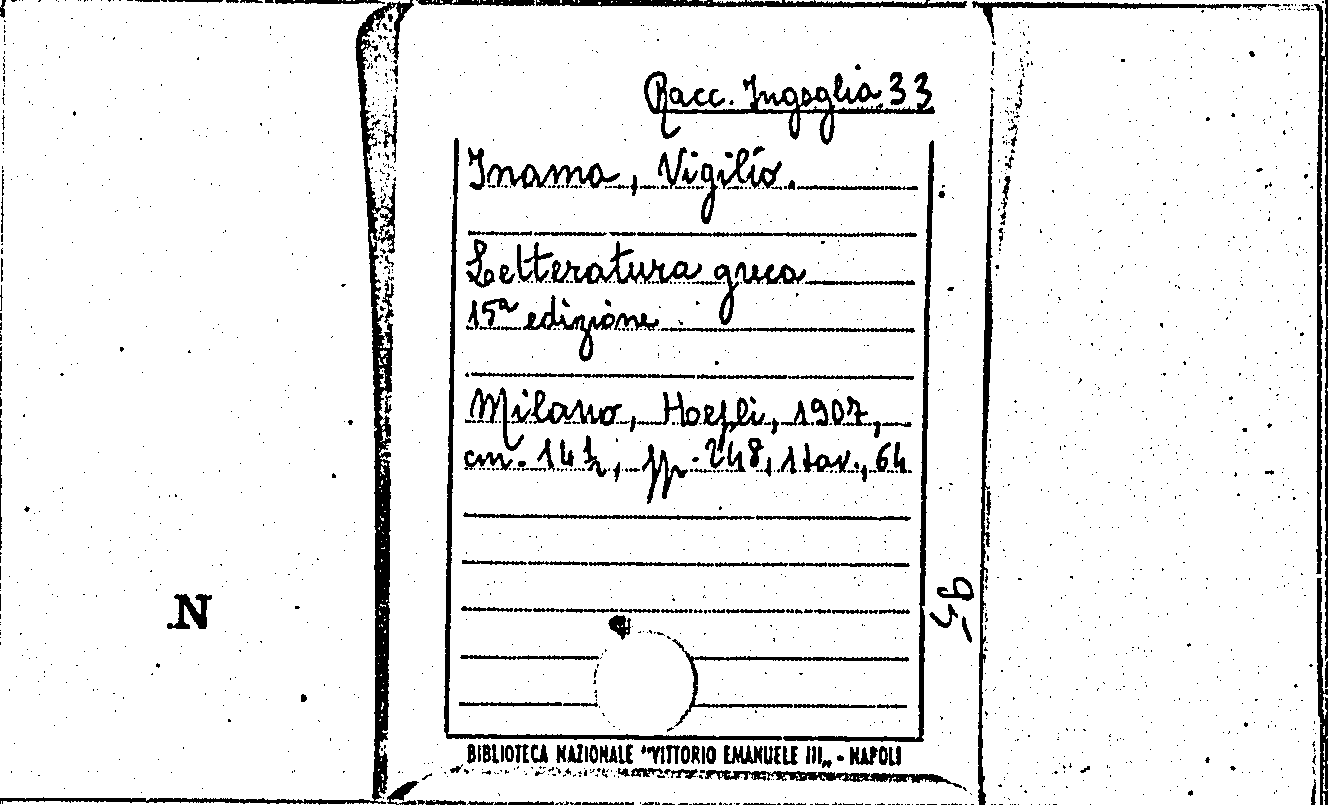 Racc. Ingoglia 33
Inama, Vigilio.
Letteratura greca
15ª edizione
Milano, Hoepli, 1907,
cm. 14½, pp. 248, 1 tav., 64
95
.N
BIBLIOTECA NAZIONALE "VITTORIO EMANUELE III„ - NAPOLI